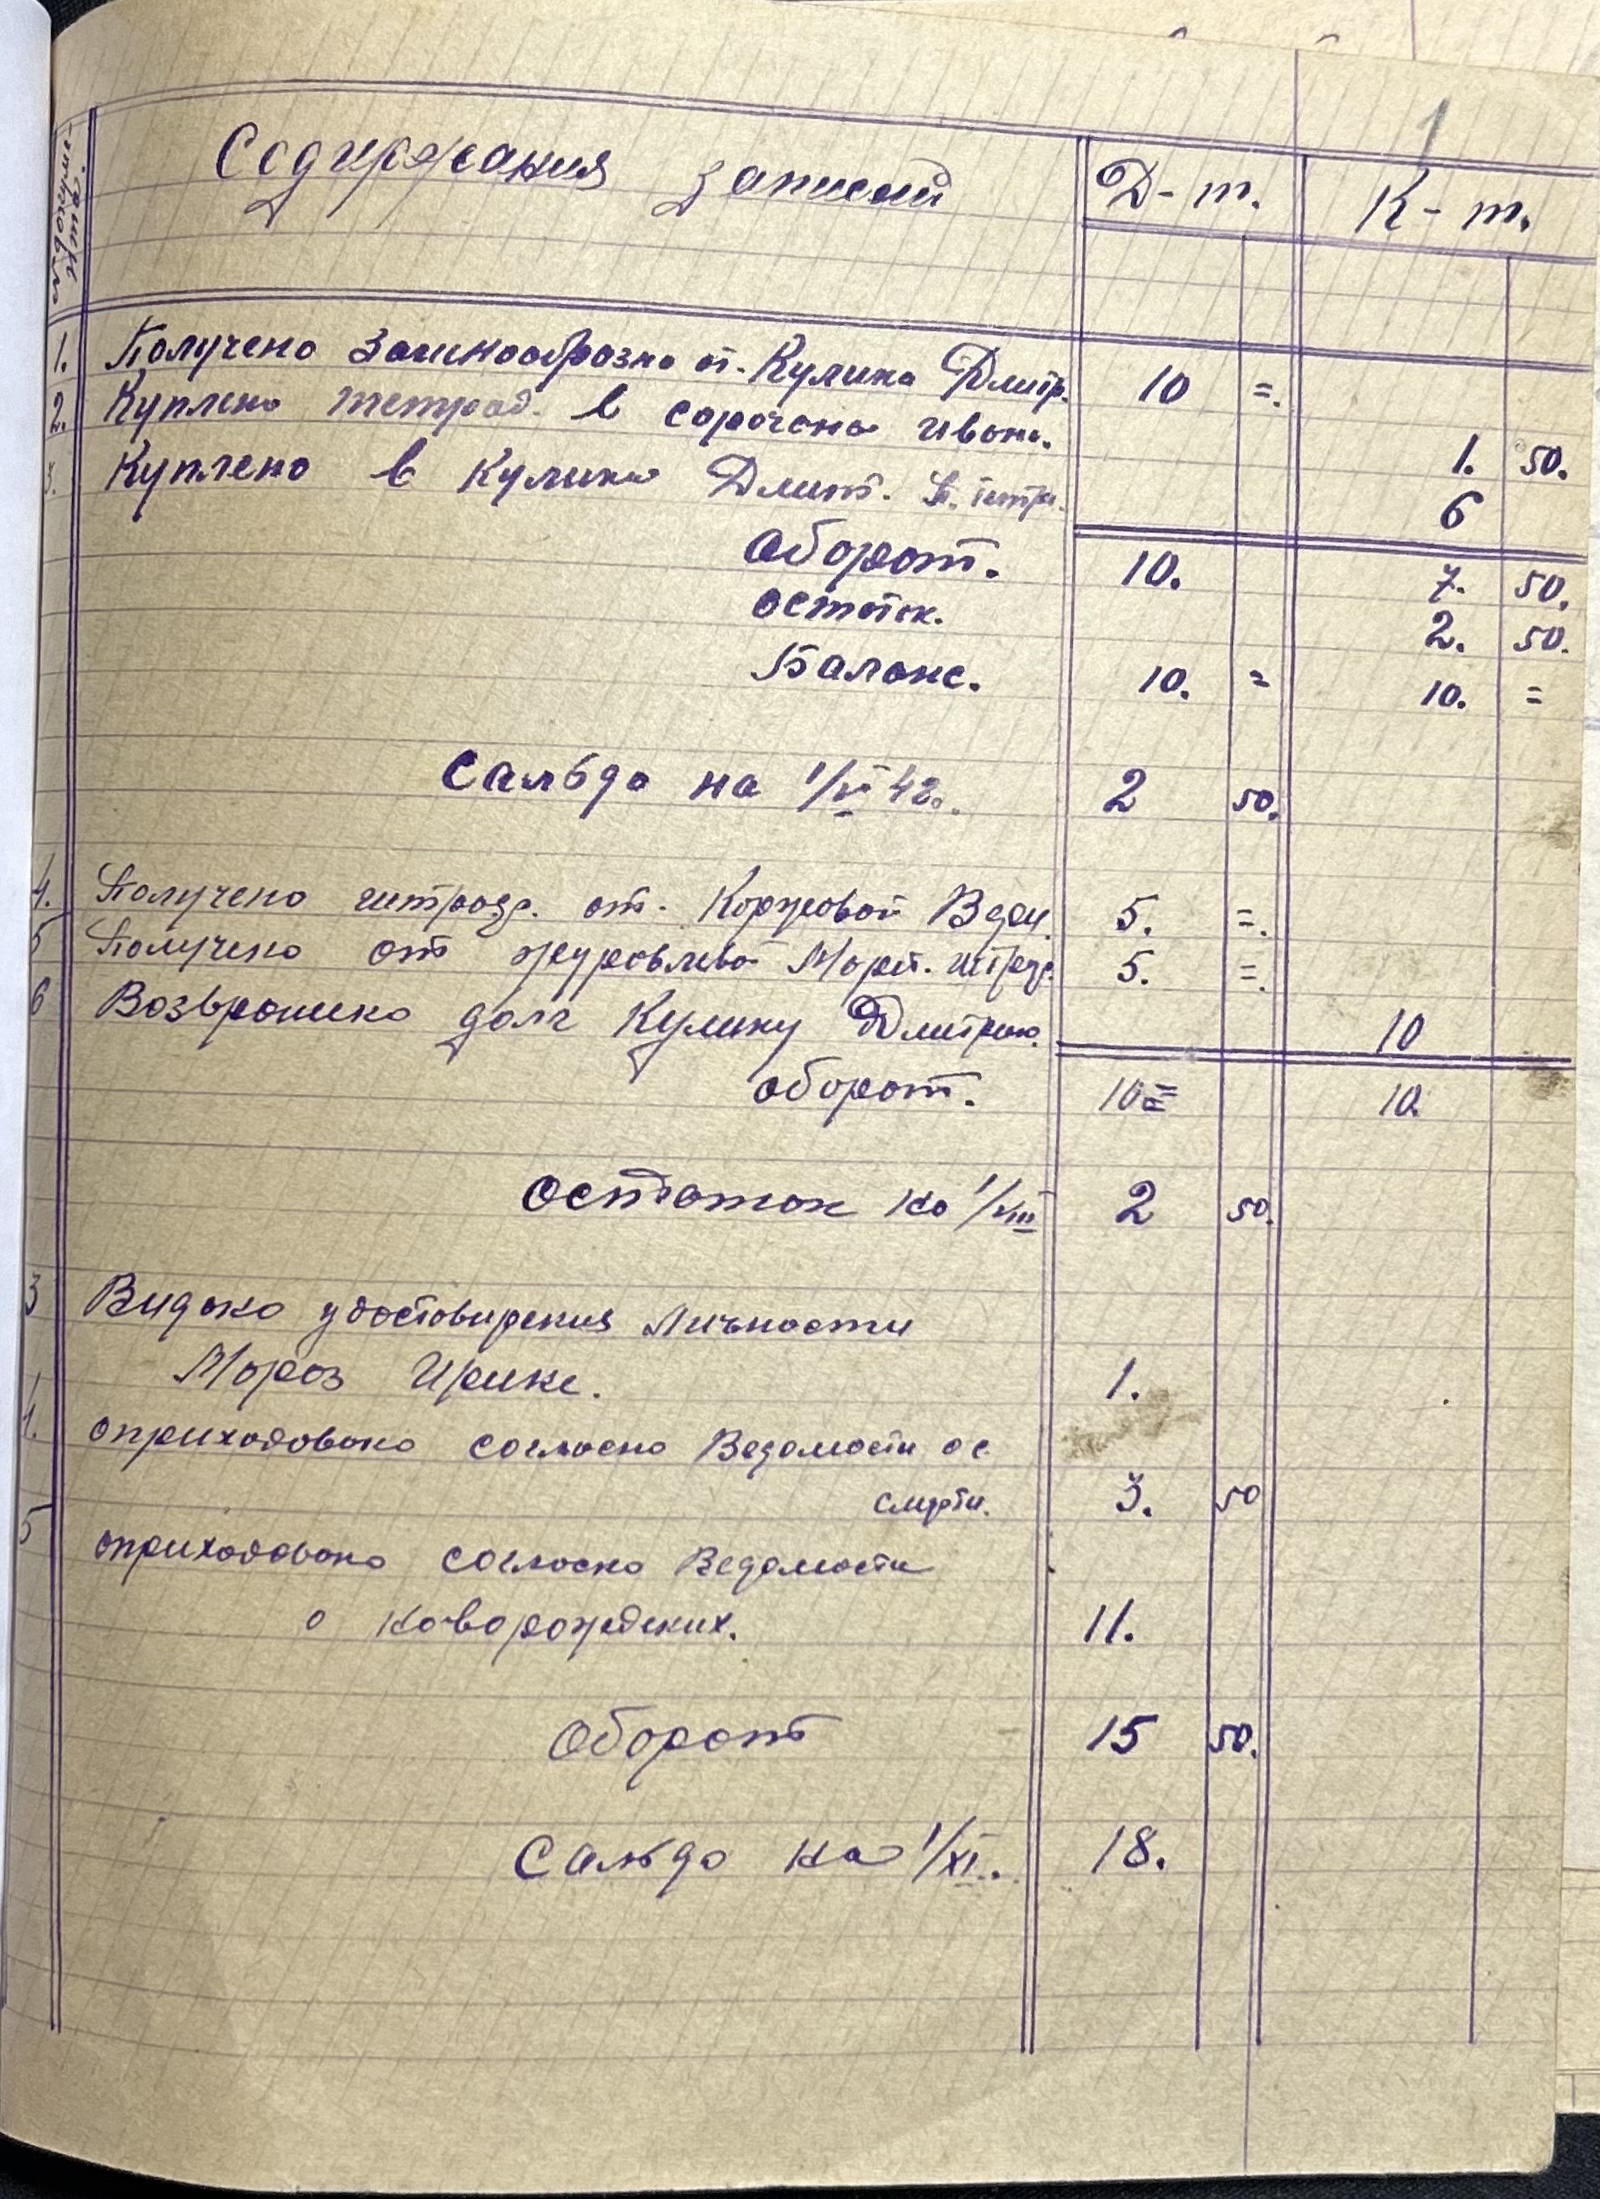 1
Содержания записей Д-т. К-т.
1. Получено Заимообразно от. Кулика Дмитр. 10 =.
2. Куплено тетрад. в сорочана Ивана. 1. 50.
3. Куплено в Кулика Дмит. 6
Оборот. 10. 7. 50.
Остаток. 2. 50.
Баланс. 10. = 10. =
Сальдо на 1/VI 42. 2 50.
4. Получено от. Коржовой 5. =.
5 Получено от журовлевой 5. =.
6 Возврошено долг Кулику Дмитрию. 10
оборот. 10 = 10.
Остаток на 1/VIII 2 50.
3 Видано удостовирения личности
Мороз Ирине. 1.
4. оприходовано согласно Ведомости о с.
смерти. 3. 50
5 оприходовано согласно Ведомости
о новорождених. 11.
Оборот 15 50.
Сальдо на 1/XI. 18.